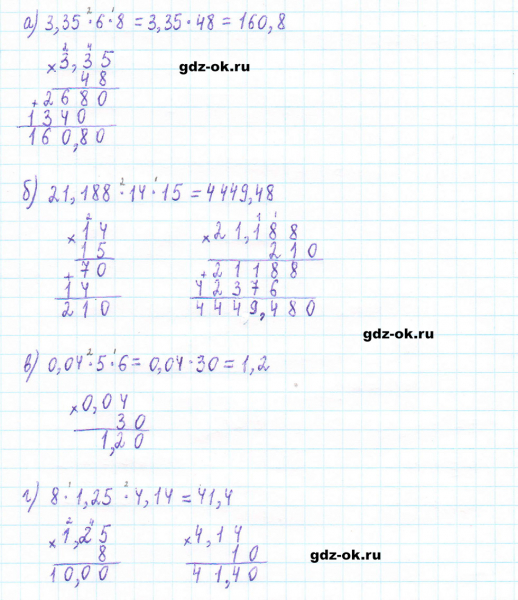 а) 3,35 ·² 6 ·¹ 8 = 3,35 · 48 = 160,8
2 4
× 3,35
48
gdz-ok.ru
+ 2680
1340
160,80
б) 21,188 ·² 14 ·¹ 15 = 4449,48
2
× 14
15
+ 70
14
210
1 1
× 21,188
210
+ 21188
42376
4449,480
gdz-ok.ru
в) 0,04 ·² 5 ·¹ 6 = 0,04 · 30 = 1,2
× 0,04
30
1,20
г) 8 ·¹ 1,25 ·² 4,14 = 41,4
2 4
× 1,25
8
10,00
× 4,14
10
41,40
gdz-ok.ru